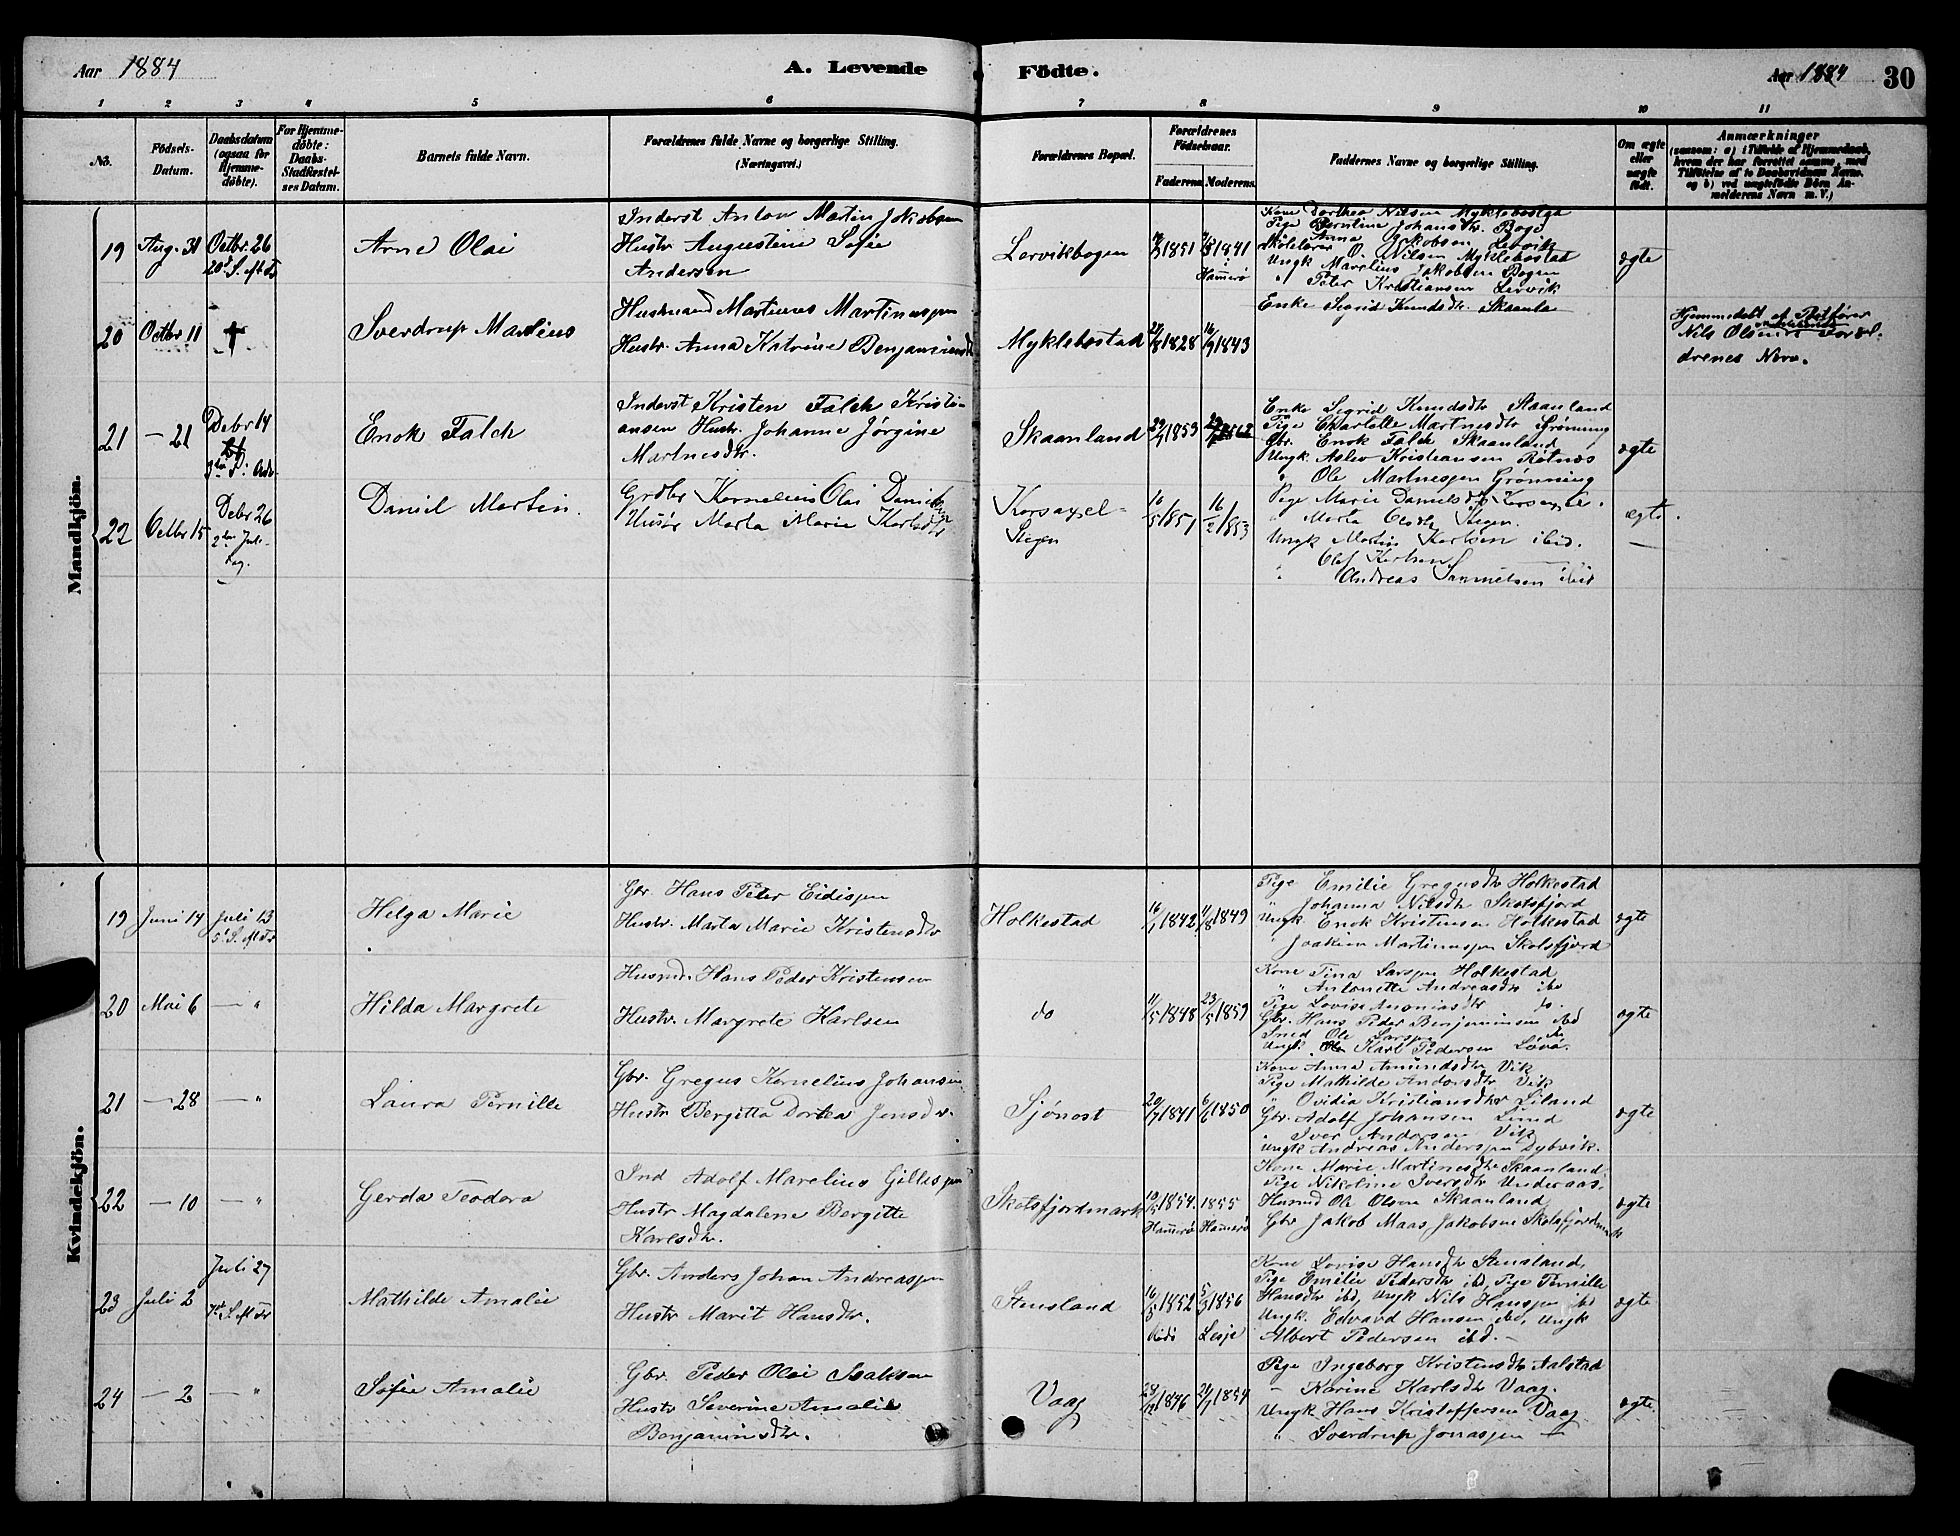 Aar 1884
A. Levende Födte.
Aar 1884
30
1 2 3 4 5 6 7 8 9 10 11
No.
Födsels-Datum.
Daabsdatum (ogsaa for Hjemme-döbte).
For Hjemme-döbte: Daabs-Stadfæstel-ses Datum.
Barnets fulde Navn.
Forældrenes fulde Navne og borgerlige Stilling. (Næringsvei.)
Forældrenes Bopæl.
Forældrenes Födselsaar.
Faderens. Moderens.
Faddernes Navne og borgerlige Stilling.
Om ægte eller uægte födt.
Anmærkninger
(saasom: a) i Tilfælde af Hjemmedaab, hvem der har forrettet samme, med Tilföielse af to Daabsvidners Navne, og b) ved uægtefödte Börn An-melderens Navn m. V.)
Mandkjön.
19 Aug. 31 Octbr. 26
20d S. eft Tr
Arne Olai
Inderst Anton Martin Jakobsen
Hustr Augustine Sofie
Andersen
Lervikbogen
1851 1841
Hamerø
Kone Dorthea Nilsen Myklebostad
Pige Berntine Johansdtr. Boge
Anna Jakobsen Lervik
O. Nilsen Myklebostad
Ungk Marelius Jakobsen Bogen
" Peter Kristiansen Lervik
ægte
20 Octbr 11 †
Sverdrup Martius
Husmand Martines Martinussen
Hustr. Anna Katrine Benjaminsdtr
Myklebostad
27/8 1828 16/9 1843
Enke Sigrid Knudsdtr Skaanla
Hjemmedøbt af
Nils Olsen i Foræl-
drenes Nærv.
21 — 21 Debr 14
3die S. i Adv.
Enok Falch
Inderst Kristen Falch Kristi-
ansen Hustr. Johanne Jørgine
Martnesdtr.
Skaanland
1853
Enke Sigrid Knudsdtr Skaanland
Pige Charlotte Martnesdtr Grønning
Gbr. Enok Falch Skaanland
Ungk. Asløv Kristiansen Røtnæs
" Ole Martnessen Grønning
ægte
22 Octbr 15 Debr 26
2den Jule-
dag.
Daniel Martin.
Grdbr Kornelius Olai Daniels
Hustr Marta Marie Karlsdtr
Korsaxel-
Stegen
16/5 1851 16/2 1853
Pige Marie Danielsdtr
" Marta Olsdtr Stegen.
Ungk Martin Karlsen ibid.
Olaf Karlsen
" Andreas Samuelsen ibid
ægte.
Kvindekjön.
19 Juni 14 Juli 13
5' S. eft Tr
Helga Marie
Gbr. Hans Peter Eidissen
Hustr. Marta Marie Kristensdtr
Holkestad
16/1 1842 11/8 1849
Pige Emilie Gregusdtr Holkestad
" Johanna Nilsdtr Skotsfjord
Ungk Enok Kristensen Holkestad
" Joakim Martinussen Skotsfjord
ægte
20 Mai 6 — "
Hilda Margrete
Husmd. Hans Peder Kristensen
Hustr. Margrete Karlsen
do
11/5 1848 23/5 1859
Kone Tina Larssen Holkestad
" Antonette Andreasdtr ibd
Pige Lovise Anoniasdtr do.
Gbr. Hans Peder Benjaminsen ibd
Smed Ole Larssen do
Ungk. Karl Pedersen Løvø.
ægte
21 — 28 — "
Laura Pernille
Gbr. Gregus Kornelius Johansen
Hustr Bergitta Dortea Jensdtr.
Sjønost
20/7 1841 6/6 1850
Kone Anna Amundsdtr Vik
Pige Mathilde Andersdtr Vik
" Ovidia Kristiansdtr Liland
Gbr. Adolf Johansen Lund
" Iver Andersen Vik
Ungk Andreas Anderssen Dybvik.
ægte
22 — 10 — "
Gerda Teodora
Ind Adolf Marelius Gillessen
Hustr Magdalene Bergitte
Karlsdtr.
Skotsfjordmark
1854. 1855
Hamerø Hamerø
Kone Marie Martinesdtr Skaanland
Pige Nikoline Iversdtr Underaas.
Husmd Ole Olsen Skaanland
Gbr Jakob Maas Jakobsen Skotsfjordmark
ægte
23 Juli 2 Juli 27
7de S. eft Tr
Mathilde Amalie
Gbr. Anders Johan Andreassen
Hustr Marit Hansdtr.
Stensland
16/5 1852 5/3 1856
Lesje
Kone Lovise Hansdtr Stensland,
Pige Emilie Pedersdtr ibd, Pige Pernille
Hansdtr ibd, Ungk Nils Hanssen ibd
Ungk. Edvard Hansen ibd, Ungk
Albert Pedersen ibd. —
ægte
24 — 2 — "
Sofie Amalie
Gbr. Peder Olai Isaksen
Hustr Severine Amalie
Benjaminsdtr.
Vaag
1846 1854
Pige Ingeborg Kristensdtr Aalstad
— Karine Karlsdtr Vaag.
Ungk Hans Kristoffersen Vaag
" Sverdrup Jonassen —
ægte.